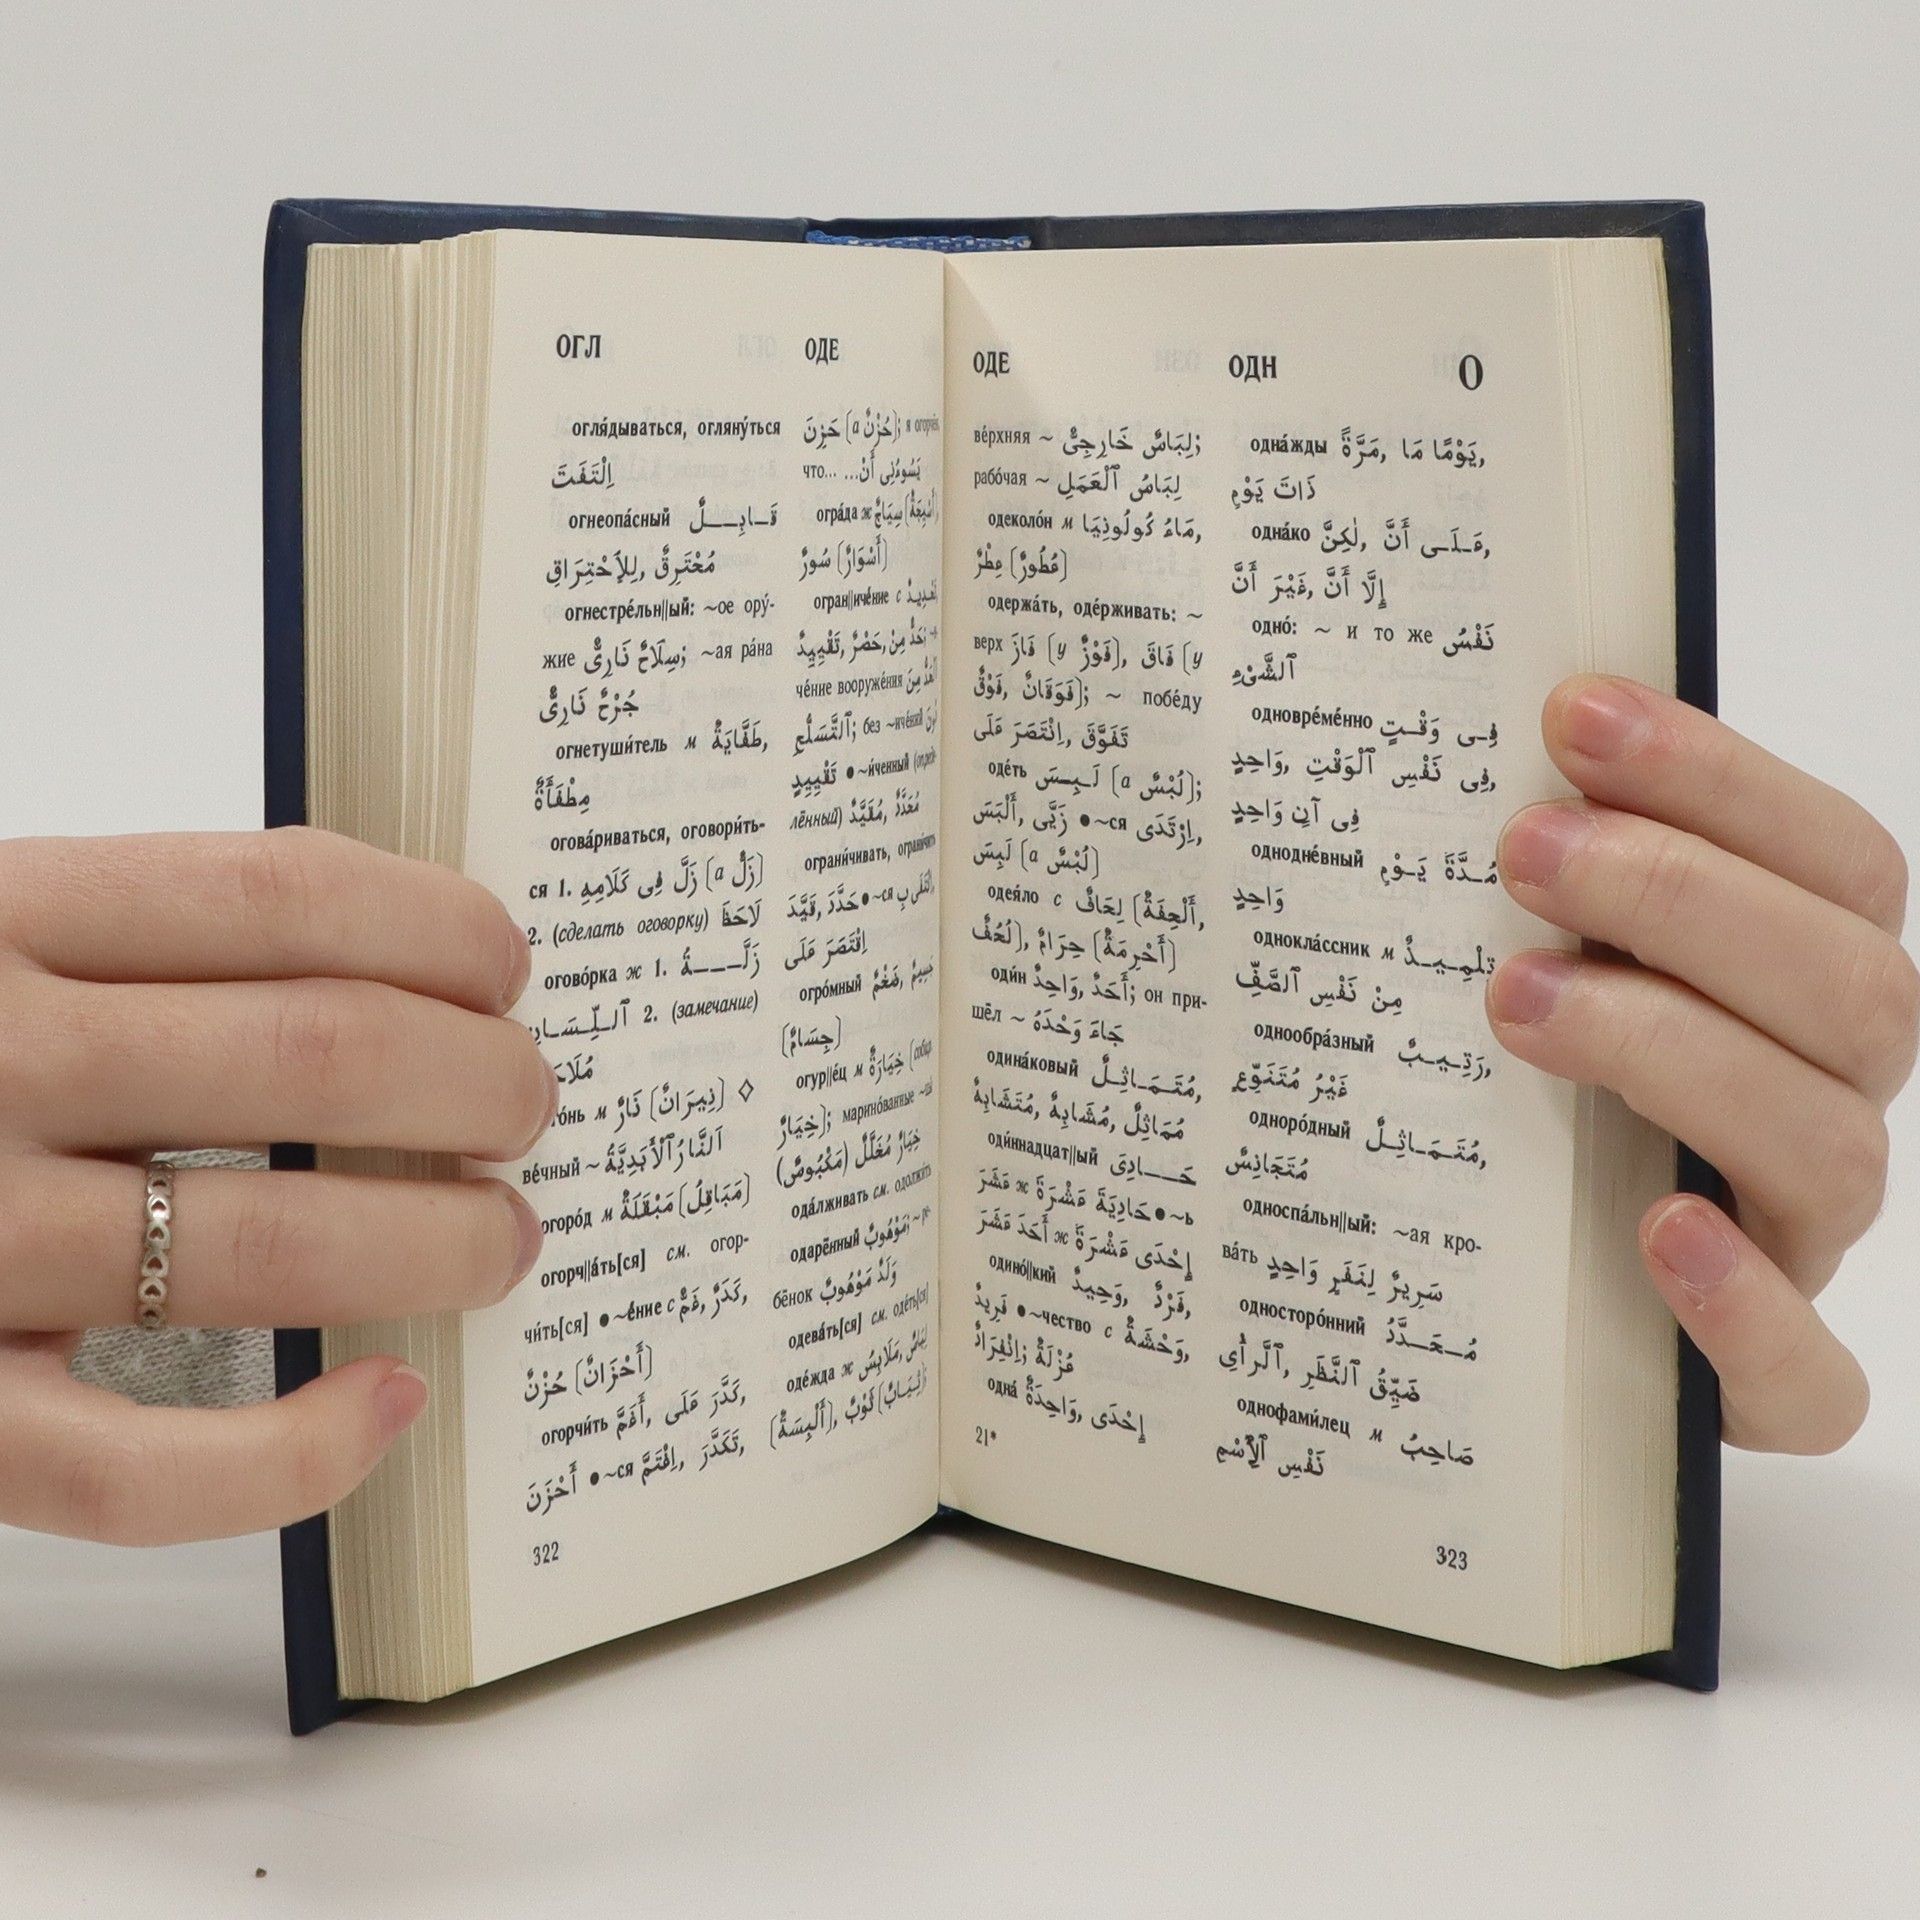 ОГЛ
ОДЕ
огля́дываться, огляну́ться
اِلْتَفَتَ
огнеопа́сный قَـابِــلٌ
لِلِاَحْتِرَاقِ, مُحْتَرِقٌ
огнестре́льн||ый: ~ое ору́-
жие سِلَاحٌ نَارِىٌّ; ~ая ра́на
جُرْحٌ نَارِىٌّ
огнетуши́тель м طَفَّايَةٌ,
مِطْفَأَةٌ
огова́риваться, оговори́ть-
ся 1. زَلَّ فِى كَلَامِهِ (a زَلٌّ)
2. (сделать оговорку) لَاحَظَ
огово́рка ж 1. زَلَّـــةُ
ٱللِّسَانِ 2. (замечание)
м نَارٌ (نِيرَانٌ) ◇
ве́чный ~ اَلنَّارُ ٱلْأَبَدِيَّةُ
огоро́д м مَبْقَلَةٌ (مَبَاقِلُ)
огорч||а́ть[ся] см. огор-
чи́ть[ся] ●~е́ние с غَمٌّ, كَدَرٌ,
حُزْنٌ (أَحْزَانٌ)
огорчи́ть كَدَّرَ عَلَى, أَغَمَّ,
أَحْزَنَ ●~ся اِغْتَمَّ, تَكَدَّرَ,
حَزِنَ (a حُزْنٌ); я
что... يَسُوءُنِى أَنْ...
огра́да ж سِيَاجٌ
سُورٌ (أَسْوَارٌ)
огран||иче́ние с
تَقْيِيدٌ, حَصْرٌ
че́ние вооруже́ния
ٱلتَّسَلُّحِ; без
تَقْيِيدٍ ●~и́ченный
лённый) مُقَيَّدٌ, مُحَدَّدٌ
ограни́чивать, ограничить
قَيَّدَ, حَدَّدَ ●~ся
اِقْتَصَرَ عَلَى
огро́мный ضَخْمٌ, جَسِيمٌ
(جِسَامٌ)
огур||е́ц м خِيَارَةٌ
خِيَارٌ); марино́ванные
خِيَارٌ مُخَلَّلٌ (مَكْبُوسٌ)
ода́лживать см. одолжить
одарённый مَوْهُوبٌ;
бёнок وَلَدٌ مَوْهُوبٌ
одева́ть[ся] см. оде́ть[ся]
оде́жда ж مَلَابِسُ
(أَلْبِسَةٌ)
322
ОДЕ
ОДН
О
ве́рхняя ~ لِبَاسٌ خَارِجِىٌّ;
рабо́чая ~ لِبَاسُ ٱلْعَمَلِ
одеколо́н м مَاءُ كُولُونِيَا,
عِطْرٌ (عُطُورٌ)
одержа́ть, оде́рживать: ~
верх فَازَ (y فَوْزٌ), فَاقَ (y
فَوْقٌ, فَوَقَانٌ); ~ побе́ду
تَفَوَّقَ, اِنْتَصَرَ عَلَى
оде́ть لَـبِـسَ (a لُبْسٌ);
أَلْبَسَ, زَيَّى ●~ся اِرْتَدَى,
لَبِسَ (a لُبْسٌ)
одея́ло с لِحَافٌ (أَلْحِفَةٌ,
لُحُفٌ), حِرَامٌ (أَحْرِمَةٌ)
оди́н أَحَدٌ, وَاحِدٌ; он при-
шёл ~ جَاءَ وَحْدَهُ
одина́ковый مُتَـمَـاثِـلٌ,
مُمَاثِلٌ, مُشَابِهٌ, مُتَشَابِهٌ
оди́ннадцат||ый حَــادِىَ
عَشَرَ ж حَادِيَةَ عَشْرَةَ ●~ь
أَحَدَ عَشَرَ ж إِحْدَى عَشْرَةَ
одино́||кий وَحِيدٌ, فَرْدٌ,
فَرِيدٌ ●~чество с وَحْشَةٌ,
عُزْلَةٌ; اِنْفِرَادٌ
одна́ وَاحِدَةٌ, إِحْدَى
21*
одна́жды مَرَّةً, يَوْمًا مَا,
ذَاتَ يَوْمٍ
одна́ко لٰكِنَّ, عَـلَـى أَنَّ,
إِلَّا أَنَّ, غَيْرَ أَنَّ
одно́: ~ и то же نَفْسُ
ٱلشَّىْءِ
одновре́ме́нно فِـى وَقْـتٍ
وَاحِدٍ, فِى نَفْسِ ٱلْوَقْتِ,
فِى آنٍ وَاحِدٍ
однодне́вный مُـدَّةَ يَـوْمٍ
وَاحِدٍ
однокла́ссник м تِلْمِـيـذٌ
مِنْ نَفْسِ ٱلصَّفِّ
однообра́зный رَتِـيـبٌ,
غَيْرُ مُتَنَوِّعٍ
одноро́дный مُتَـمَـاثِـلٌ,
مُتَجَانِسٌ
односпа́льн||ый: ~ая кро-
ва́ть سَرِيرٌ لِنَفَرٍ وَاحِدٍ
односторо́нний مُـحَـدَّدُ
ٱلرَّأْىِ, ضَيِّقُ ٱلنَّظَرِ
однофами́лец м صَاحِبُ
نَفْسِ ٱلِٱسْمِ
323